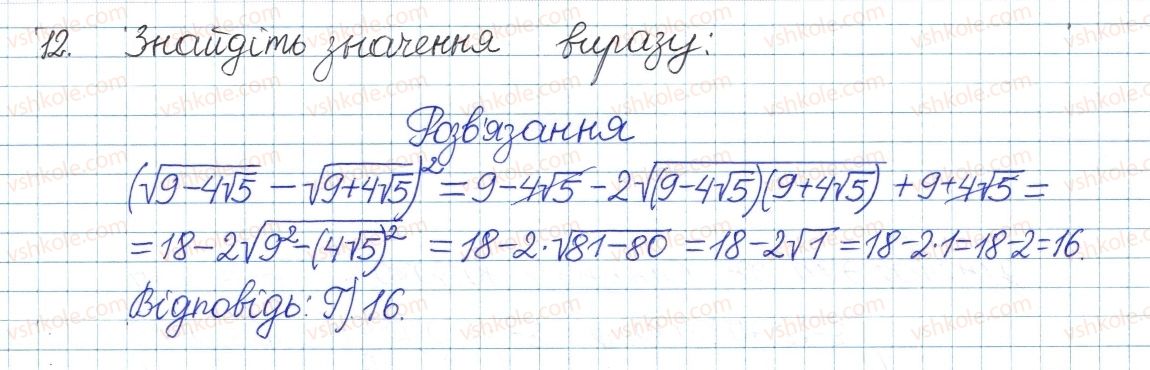 12. Знайдіть значення виразу:
Розв'язання
(√(9-4√5) - √(9+4√5))² = 9-4√5 - 2√((9-4√5)(9+4√5)) + 9+4√5 =
= 18-2√(9²-(4√5)²) = 18-2·√(81-80) = 18-2√1 = 18-2·1 = 18-2 = 16.
Відповідь: Г) 16.